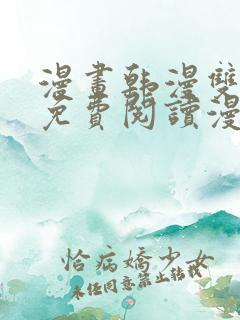 漫畫韩漫雙
免費閱讀漫
恰病嬌少女
未经同意禁止转载